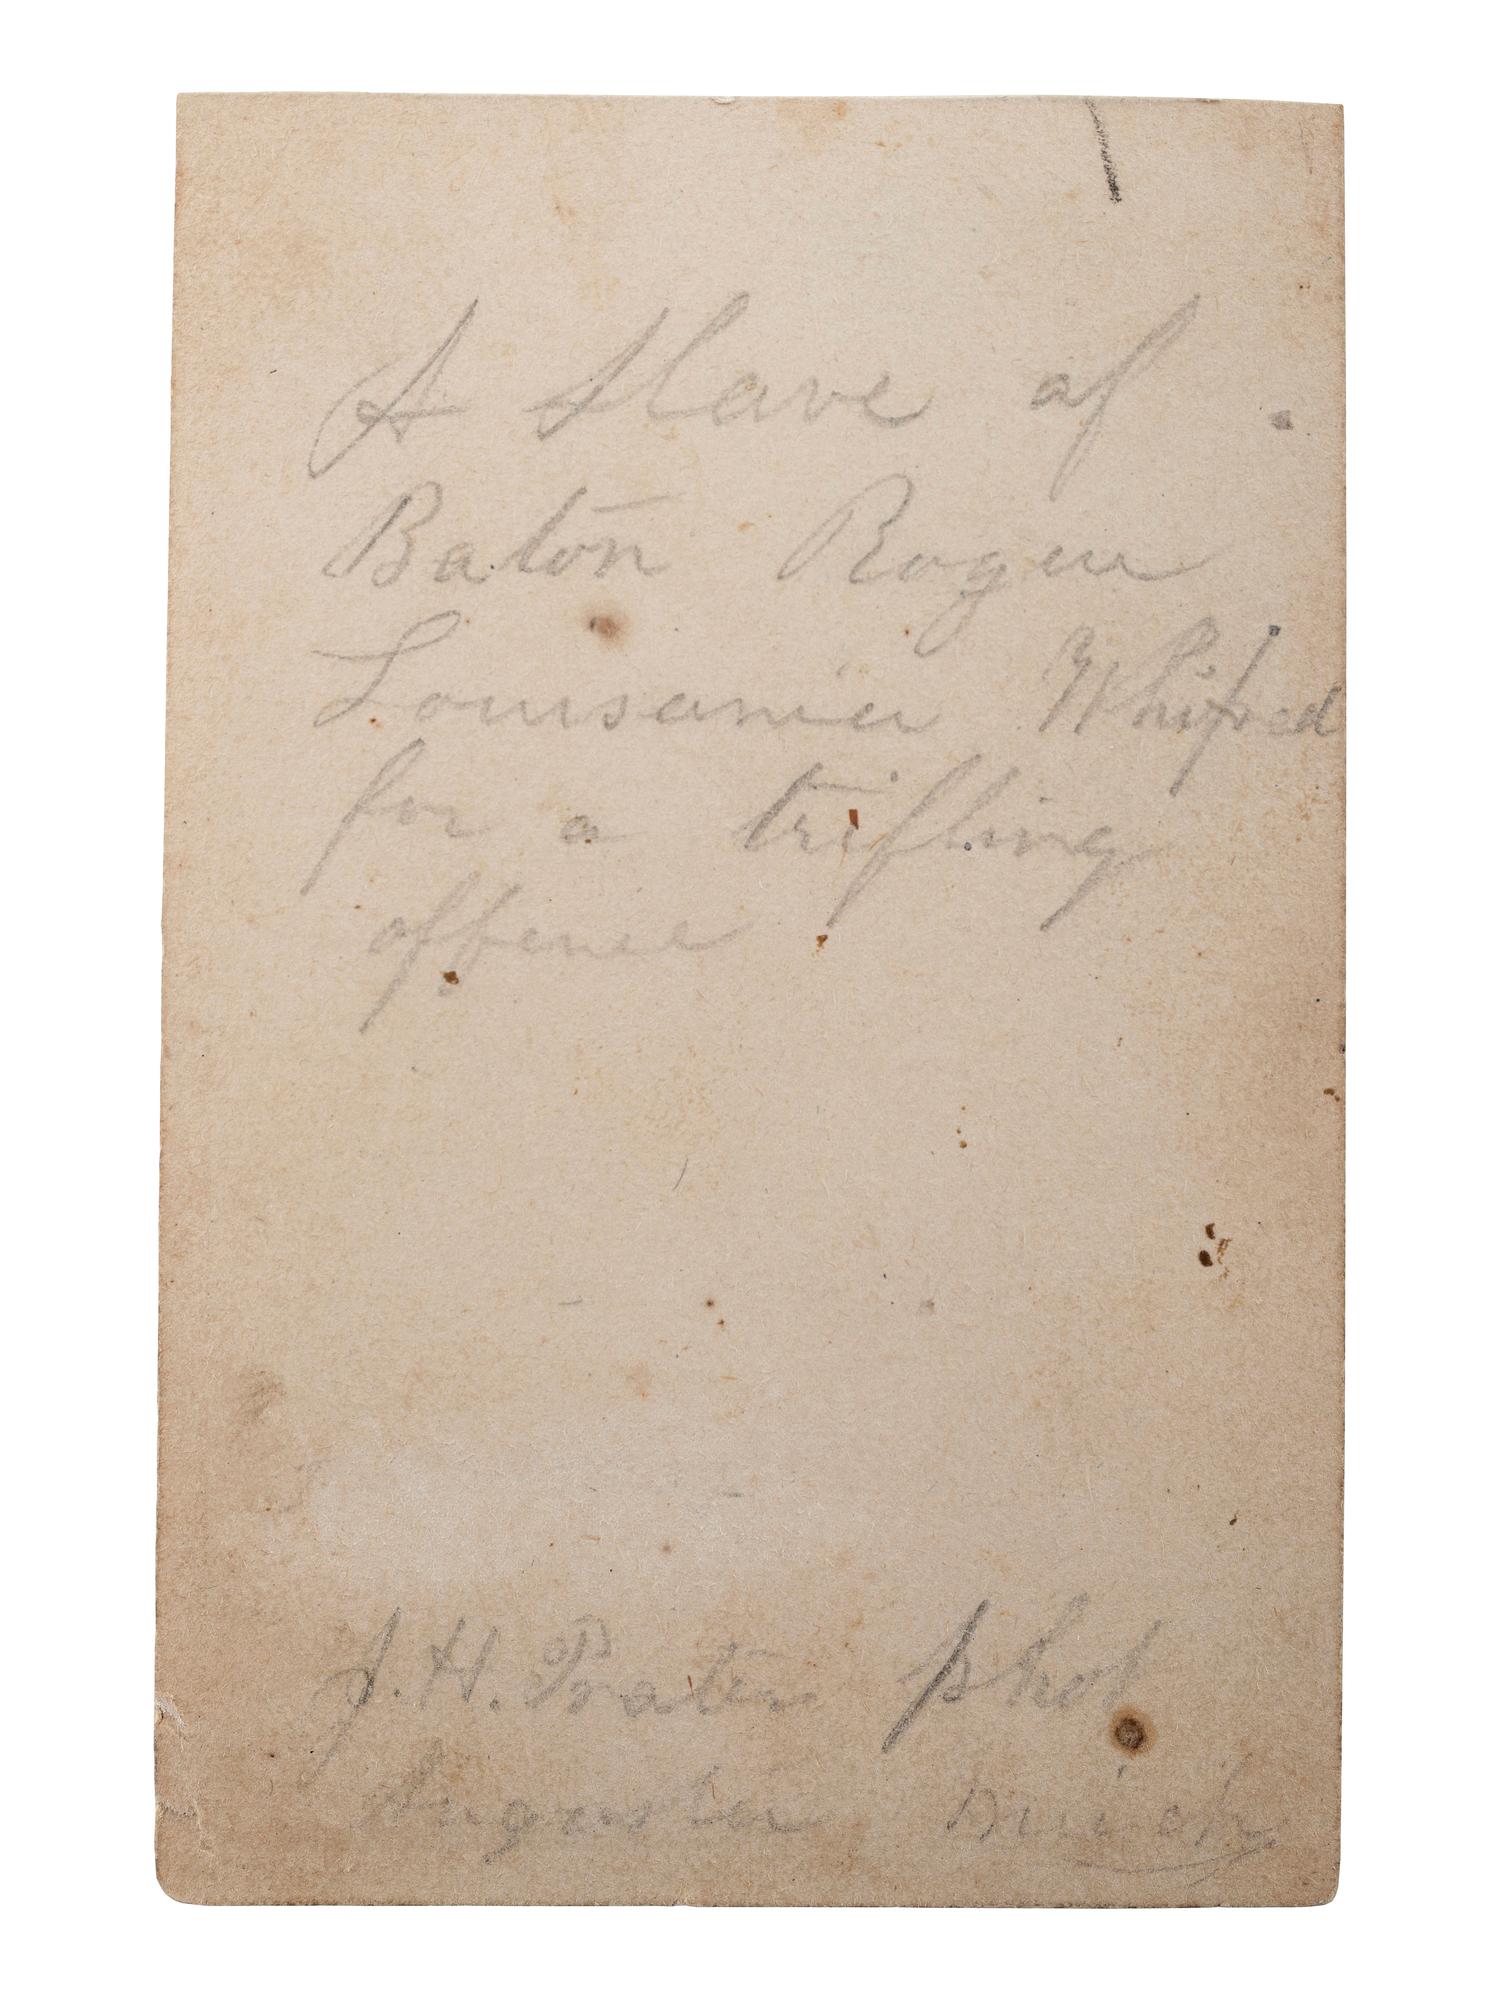 A Slave of
Baton Rogue
Louisanier Whiped
for a trifling
offence
J. H. Prater phot
Augusta Mich